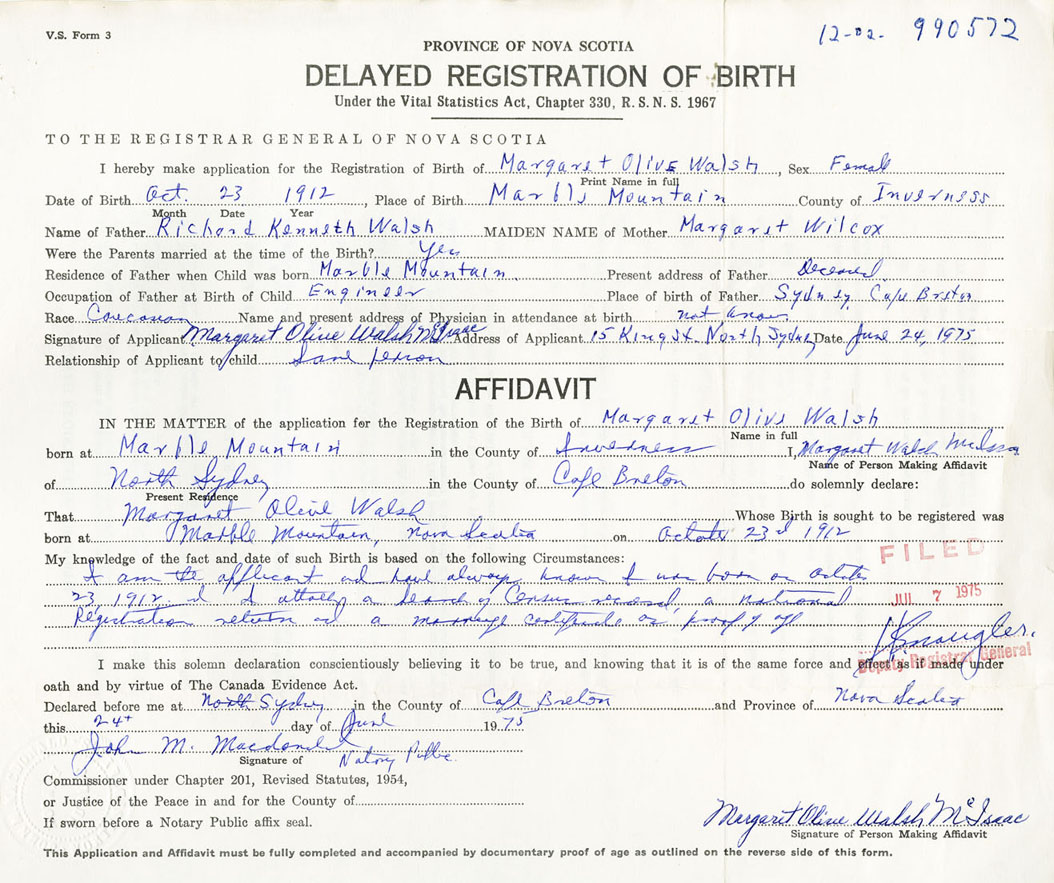 V.S. Form 3
12-02- 990572
PROVINCE OF NOVA SCOTIA
DELAYED REGISTRATION OF BIRTH
Under the Vital Statistics Act, Chapter 330, R.S.N.S. 1967
TO THE REGISTRAR GENERAL OF NOVA SCOTIA
I hereby make application for the Registration of Birth of Margaret Olive Walsh, Sex Female
Print Name in full
Date of Birth Oct. 23 1912, Place of Birth Marble Mountain County of Inverness
Month Date Year
Name of Father Richard Kenneth Walsh MAIDEN NAME of Mother Margaret Wilcox
Were the Parents married at the time of the Birth? Yes
Residence of Father when Child was born Marble Mountain Present address of Father Deceased
Occupation of Father at Birth of Child Engineer Place of birth of Father Sydney, Cape Breton
Race Name and present address of Physician in attendance at birth not known
Signature of Applicant Margaret Olive Walsh McIsaac Address of Applicant 15 King St. North Sydney Date June 24, 1975
Relationship of Applicant to child Same person
AFFIDAVIT
IN THE MATTER of the application for the Registration of the Birth of Margaret Olive Walsh
Name in full
born at Marble Mountain in the County of Inverness I, Margaret Walsh McIsaac
Name of Person Making Affidavit
of North Sydney in the County of Cape Breton do solemnly declare:
Present Residence
That Margaret Olive Walsh Whose Birth is sought to be registered was
born at Marble Mountain, Nova Scotia on October 23d 1912
My knowledge of the fact and date of such Birth is based on the following Circumstances:
I am the applicant and have always known I was born on October
23, 1912. I attach a search of Census record, a National
Registration return and a marriage certificate as proof of age
FILED
JUL 7 1975
Deputy Registrar General
I make this solemn declaration conscientiously believing it to be true, and knowing that it is of the same force and effect as if made under
oath and by virtue of The Canada Evidence Act.
Declared before me at North Sydney in the County of Cape Breton and Province of Nova Scotia
this 24th day of June 1975
John M. Macdonald
Signature of Notary Public
Commissioner under Chapter 201, Revised Statutes, 1954,
or Justice of the Peace in and for the County of
If sworn before a Notary Public affix seal.
Margaret Olive Walsh McIsaac
Signature of Person Making Affidavit
This Application and Affidavit must be fully completed and accompanied by documentary proof of age as outlined on the reverse side of this form.